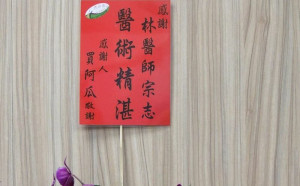 感謝
林醫師宗志
醫術精湛
感謝人
買阿瓜敬謝